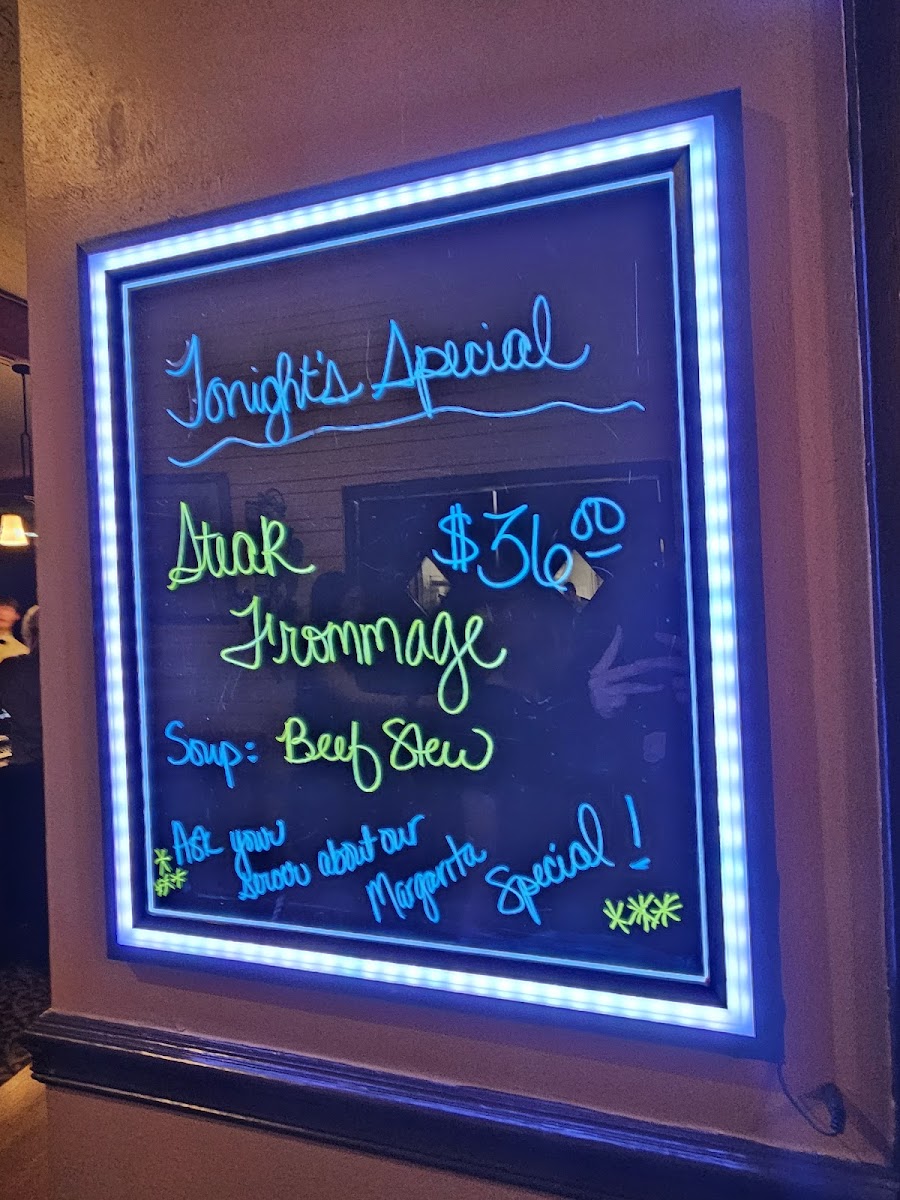 Tonight's Special
Steak $36.00
Frommage
Soup: Beef Stew
Ask your
server about our
Margarita Special!